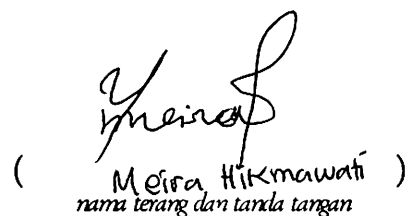 Meira
( Meira Hikmawati )
nama terang dan tanda tangan